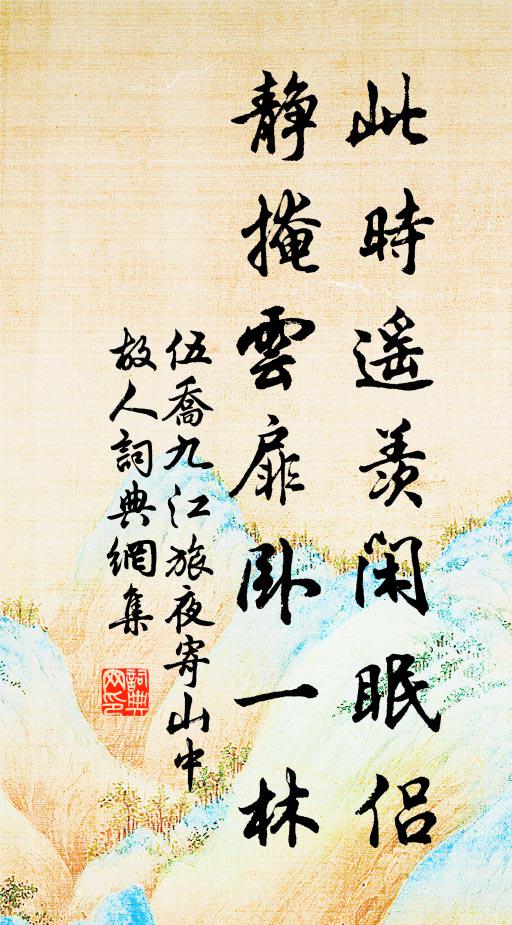 此時遥羨閑眠侶
静掩雲扉卧一林
伍喬九江旅夜寄山中
故人詞典網集
詞典網印